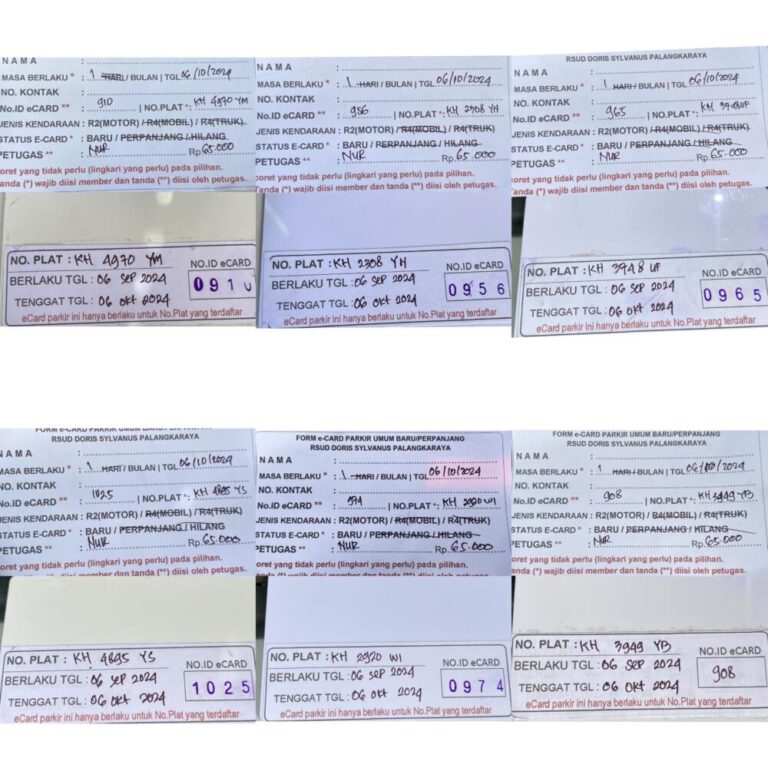 NAMA :
MASA BERLAKU * : 1 HARI / BULAN | TGL 06/10/2024
NO. KONTAK :
No.ID eCARD ** : 910 | NO.PLAT *: KH 4970 YM
JENIS KENDARAAN : R2(MOTOR) / R4(MOBIL) / R4(TRUK)
STATUS E-CARD * : BARU / PERPANJANG / HILANG
PETUGAS ** : NUR Rp. 65.000
oret yang tidak perlu (lingkari yang perlu) pada pilihan.
anda (*) wajib diisi member dan tanda (**) diisi oleh petugas.
NO. PLAT : KH 4970 YM
BERLAKU TGL : 06 SEP 2024
TENGGAT TGL : 06 OKT 2024
NO.ID eCARD
0910
eCard parkir ini hanya berlaku untuk No.Plat yang terdaftar
NAMA :
MASA BERLAKU * : 1 HARI / BULAN | TGL 06/10/2024
NO. KONTAK :
No.ID eCARD ** : 956 | NO.PLAT *: KH 2308 YN
JENIS KENDARAAN : R2(MOTOR) / R4(MOBIL) / R4(TRUK)
STATUS E-CARD * : BARU / PERPANJANG / HILANG
PETUGAS ** : NUR Rp. 65.000
oret yang tidak perlu (lingkari yang perlu) pada pilihan.
Tanda (*) wajib diisi member dan tanda (**) diisi oleh petugas.
NO. PLAT : KH 2308 YN
BERLAKU TGL : 06 SEP 2024
TENGGAT TGL : 06 OKT 2024
NO.ID eCARD
0956
eCard parkir ini hanya berlaku untuk No.Plat yang terdaftar
RSUD DORIS SYLVANUS PALANGKARAYA
NAMA :
MASA BERLAKU * : 1 HARI / BULAN | TGL 06/10/2024
NO. KONTAK :
No.ID eCARD ** : 965 | NO.PLAT *: KH 3748 UF
JENIS KENDARAAN : R2(MOTOR) / R4(MOBIL) / R4(TRUK)
STATUS E-CARD * : BARU / PERPANJANG / HILANG
PETUGAS ** : NUR Rp. 65.000
oret yang tidak perlu (lingkari yang perlu) pada pilihan.
Tanda (*) wajib diisi member dan tanda (**) diisi oleh petugas.
NO. PLAT : KH 3748 UF
BERLAKU TGL : 06 SEP 2024
TENGGAT TGL : 06 OKT 2024
NO.ID eCARD
0965
eCard parkir ini hanya berlaku untuk No.Plat yang terdaftar
RSUD DORIS SYLVANUS PALANGKARAYA
NAMA :
MASA BERLAKU * : 1 HARI / BULAN | TGL 06/10/2024
NO. KONTAK :
No.ID eCARD ** : 1025 | NO.PLAT *: KH 4895 YS
JENIS KENDARAAN : R2(MOTOR) / R4(MOBIL) / R4(TRUK)
STATUS E-CARD * : BARU / PERPANJANG / HILANG
PETUGAS ** : NUR Rp. 65.000
oret yang tidak perlu (lingkari yang perlu) pada pilihan.
NO. PLAT : KH 4895 YS
BERLAKU TGL : 06 SEP 2024
TENGGAT TGL : 06 OKT 2024
NO.ID eCARD
1025
eCard parkir ini hanya berlaku untuk No.Plat yang terdaftar
FORM e-CARD PARKIR UMUM BARU/PERPANJANG
RSUD DORIS SYLVANUS PALANGKARAYA
NAMA :
MASA BERLAKU * : 1 HARI / BULAN | TGL 06/10/2024
NO. KONTAK :
No.ID eCARD ** : | NO.PLAT *: KH 2920 WI
JENIS KENDARAAN : R2(MOTOR) / R4(MOBIL) / R4(TRUK)
STATUS E-CARD * : BARU / PERPANJANG / HILANG
PETUGAS ** : NUR Rp. 65.000
oret yang tidak perlu (lingkari yang perlu) pada pilihan.
NO. PLAT : KH 2920 WI
BERLAKU TGL : 06 SEP 2024
TENGGAT TGL : 06 OKT 2024
NO.ID eCARD
0974
eCard parkir ini hanya berlaku untuk No.Plat yang terdaftar
FORM e-CARD PARKIR UMUM BARU/PERPANJANG
RSUD DORIS SYLVANUS PALANGKARAYA
NAMA :
MASA BERLAKU * : 1 HARI / BULAN | TGL 06/10/2024
NO. KONTAK :
No.ID eCARD ** : 908 | NO.PLAT *: KH 3949 YB
JENIS KENDARAAN : R2(MOTOR) / R4(MOBIL) / R4(TRUK)
STATUS E-CARD * : BARU / PERPANJANG / HILANG
PETUGAS ** : NUR Rp. 65.000
oret yang tidak perlu (lingkari yang perlu) pada pilihan.
anda (*) wajib diisi member dan tanda (**) diisi oleh petugas.
NO. PLAT : KH 3949 YB
BERLAKU TGL : 06 SEP 2024
TENGGAT TGL : 06 OKT 2024
NO.ID eCARD
908
eCard parkir ini hanya berlaku untuk No.Plat yang terdaftar